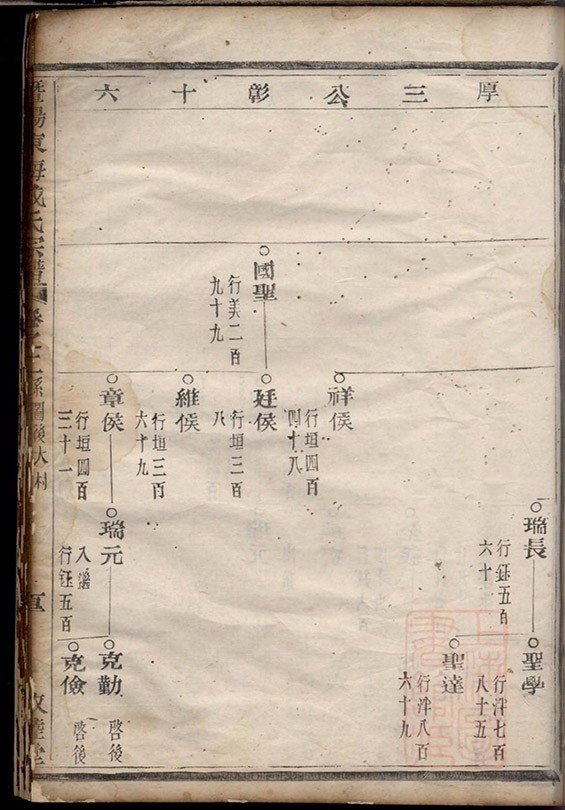 厚三公彰十六
瑞長
行鈺五百
六十
聖學
行泮七百
八十五
聖達
行泮八百
六十九
祥侯
行垣四百
四十八
國聖
行美二百
九十九
廷侯
行垣三百
八
維侯
行垣三百
六十九
章侯
行垣四百
三十一
瑞元
入選
行鈺五百
克勤
啓後
克儉
啓後
暨陽東海
氏宗譜
系圖後大村